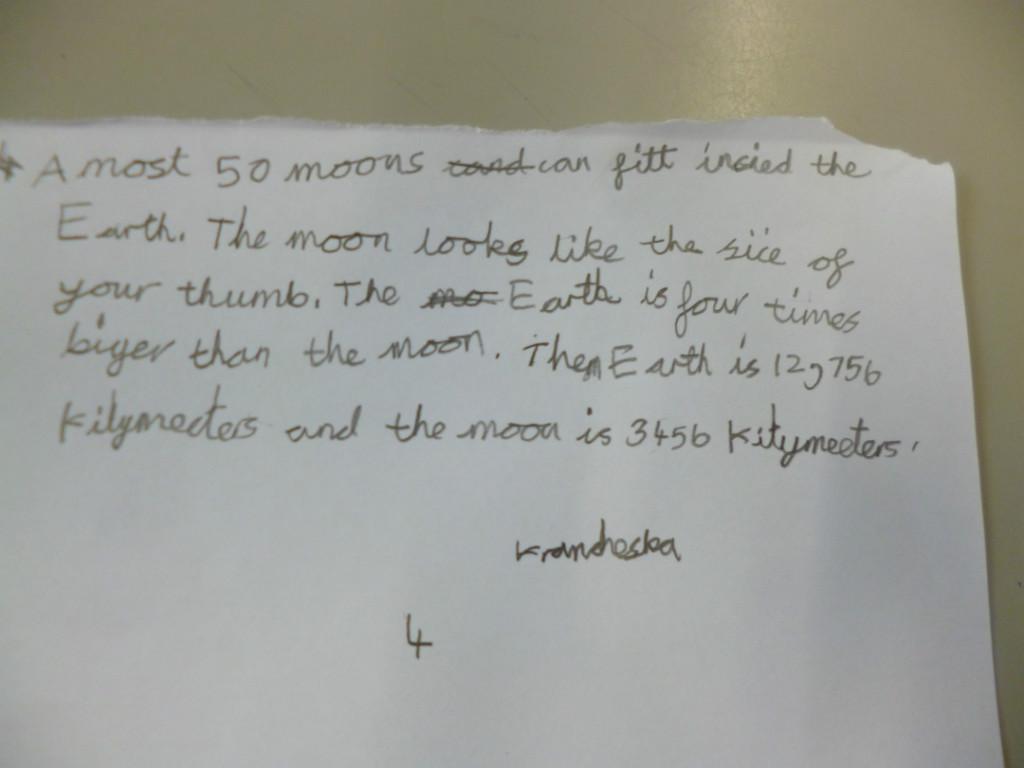 * A most 50 moons can fitt insied the
Earth. The moon looks like the sice of
your thumb. The Earth is four times
biger than the moon. Then Earth is 12,756
Kilymeeters and the moon is 3456 Kilymeeters.
Krancheska
4